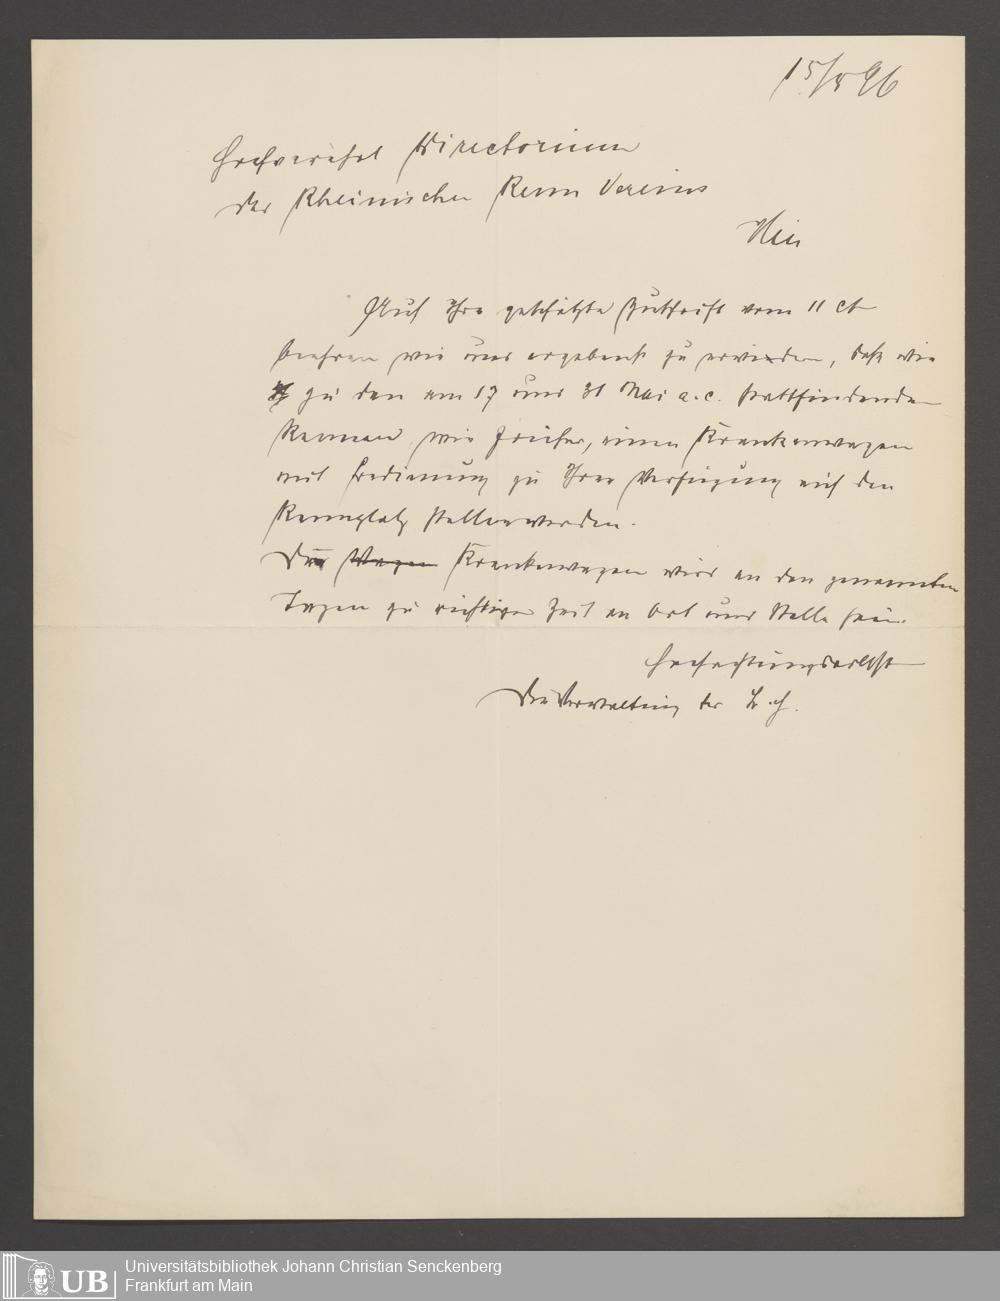 15/5 96
Hochverehrl Directorium
des Rheinischen Renn Vereins
Hier
Auf Ihre geschätzte Zuschrift vom 11 ct
beehren wir uns ergebenst zu erwidern, daß wir
zu den am 17 und 31 Mai a.c. stattfindenden
Rennen, wie früher, einen Krankenwagen
mit Bedienung zu Ihrer Verfügung auf den
Rennplatz stellen werden.
Der Wagen Krankenwagen wird an den genannten
Tagen zu richtiger Zeit an Ort und Stelle sein.
Hochachtungsvollst
Die Verwaltung des
UB Universitätsbibliothek Johann Christian Senckenberg
Frankfurt am Main